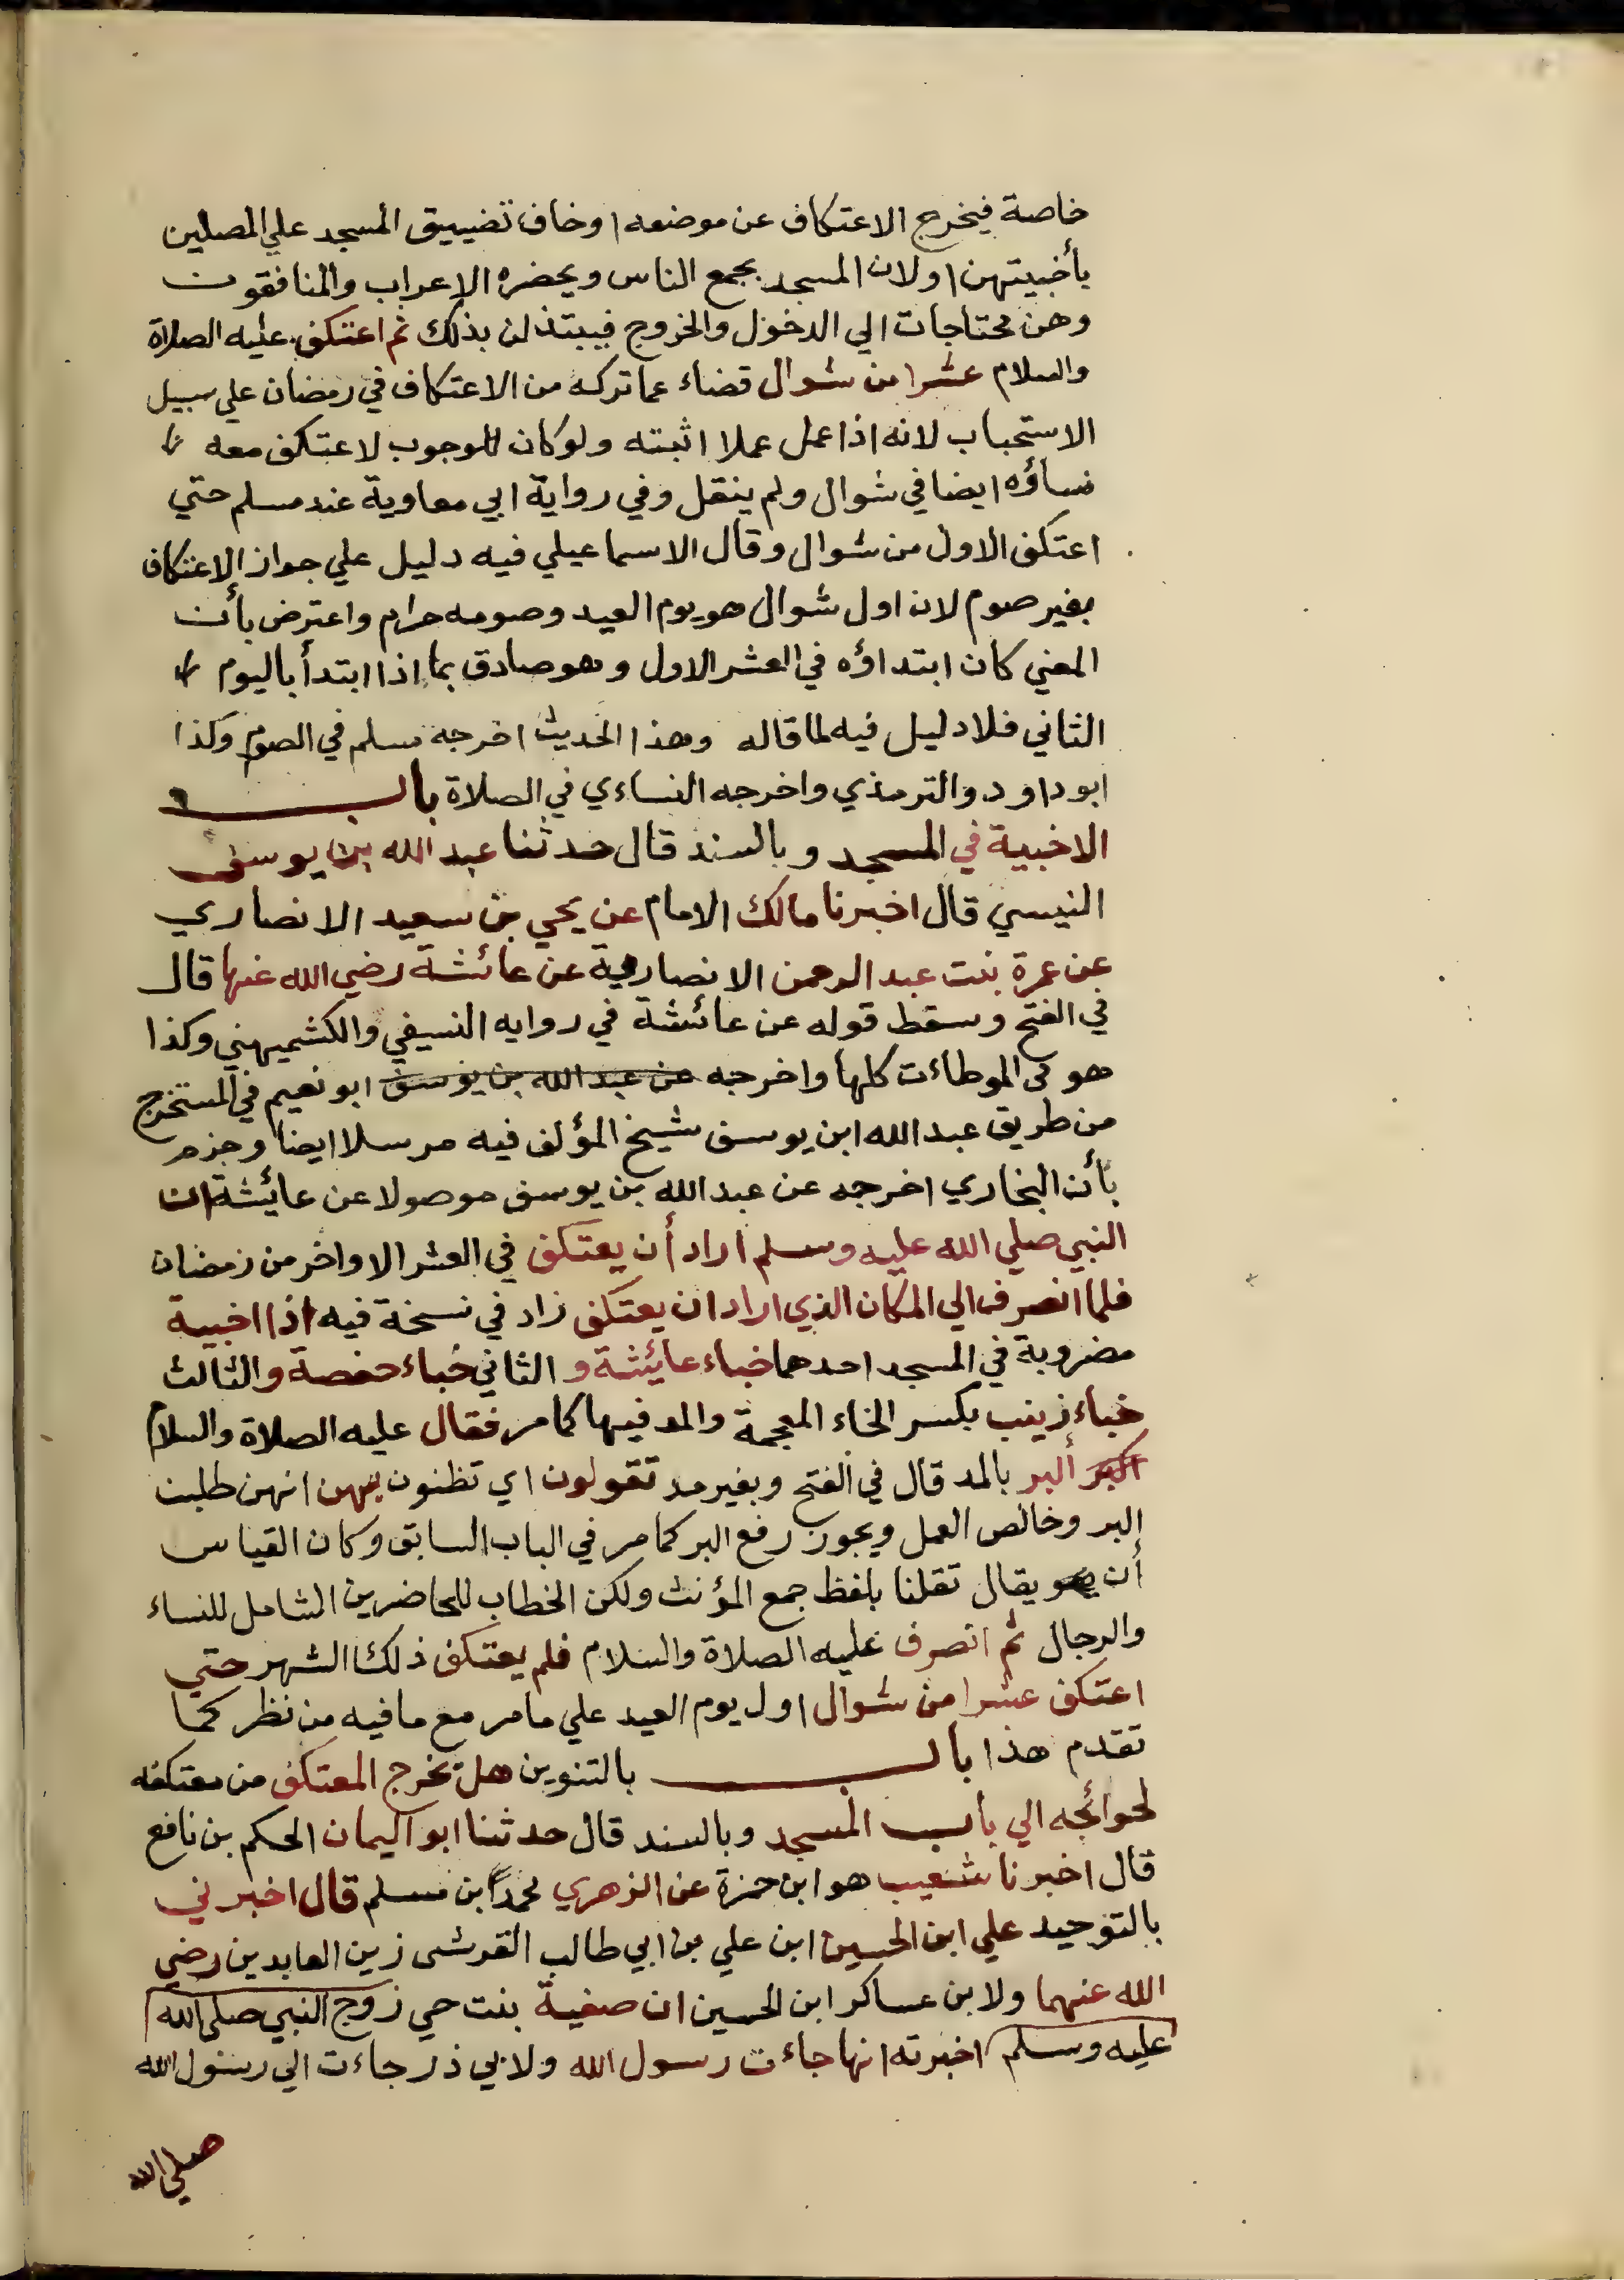 خاصة فيخرج الاعتكاف عن موضعه اوخاف تضييق المسجد علي المصلين
بأخبيتهن اولان المسجد يجمع الناس ويحضره الاعراب والمنافقون
وهن محتاجات الي الدخول والخروج فيبتذلن بذلك ثم اعتكف عليه الصلاة
والسلام عشرا من شوال قضاء عما تركه من الاعتكاف في رمضان علي سبيل
الاستحباب لانه اذا عمل عملا اثبته ولو كان للوجوب لاعتكف معه
نساؤه ايضا في شوال ولم ينقل وفي رواية ابي معاوية عند مسلم حتي
اعتكف الاول من شوال وقال الاسماعيلي فيه دليل علي جواز الاعتكاف
بغير صوم لان اول شوال هو يوم العيد وصومه حرام واعترض بأن
المعني كان ابتداؤه في العشر الاول وهو صادق بما اذا ابتدأ باليوم
الثاني فلا دليل فيه لما قاله وهذا الحديث اخرجه مسلم في الصوم وكذا
ابو داود والترمذي واخرجه النساءي في الصلاة باب
الاخبية في المسجد وبالسند قال حدثنا عبد الله بن يوسف
التنيسي قال اخبرنا مالك الامام عن يحي بن سعيد الانصاري
عن عمرة بنت عبد الرحمن الانصارية عن عائشة رضي الله عنها قال
في الفتح وسقط قوله عن عائشة في روايه النسيفي والكشميهني وكذا
هو في الموطاءت كلها واخرجه عن عبد الله بن يوسف ابو نعيم في المستخرج
من طريق عبد الله ابن يوسف شيخ المؤلف فيه مرسلا ايضا وجزم
بأن البخاري اخرجه عن عبد الله بن يوسف موصولا عن عايشة ان
النبي صلي الله عليه وسلم اراد أن يعتكف في العشر الاواخر من رمضان
فلما انصرف الي المكان الذي اراد ان يعتكف زاد في نسخة فيه اذا اخبية
مضروبة في المسجد احدهما خباء عايشة و الثاني خباء حفصة والثالث
خباء زينب بكسر الخاء المعجمة والمد فيها كما مر فقال عليه الصلاة والسلام
اكبر ألبر بالمد قال في الفتح وبغير مد تقولون اي تظنون بهن انهن طلبن
البر وخالص العمل ويجوز رفع البر كما مر في الباب السابق وكان القياس
أن يقال تقلنا بلفظ جمع المؤنث ولكن الخطاب للحاضرين الشامل للنساء
والرجال ثم انصرف عليه الصلاة والسلام فلم يعتكف ذلك الشهر حتي
اعتكف عشرا من شوال اول يوم العيد علي ما مر مع ما فيه من نظر كما
تقدم هذا باب بالتنوين هل يخرج المعتكف من معتكفه
لحوائجه الي باب المسجد وبالسند قال حدثنا ابو اليمان الحكم بن نافع
قال اخبرنا شعيب هو ابن حمزة عن الزهري محمد ابن مسلم قال اخبرني
بالتوحيد علي ابن الحسين ابن علي بن ابي طالب القرشي زين العابدين رضي
الله عنهما ولابن عساكر ابن الحسين ان صفية بنت حي زوج النبي صلي الله
عليه وسلم اخبرته انها جاءت رسول الله ولابي ذر جاءت الي رسول الله
صلي الله